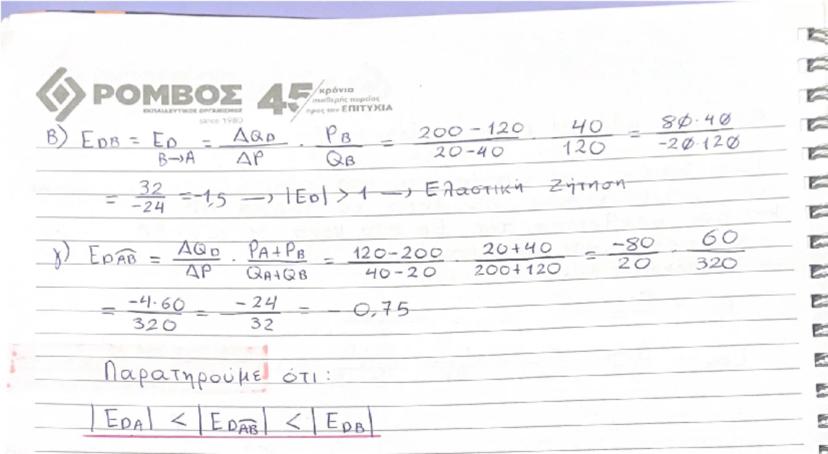 ΡΟΜΒΟΣ 45 χρόνια
ΕΚΠΑΙΔΕΥΤΙΚΟΣ ΟΡΓΑΝΙΣΜΟΣ σταθερής πορείας
since 1980 προς την ΕΠΙΤΥΧΙΑ
β) E_DB = E_D B→A = ΔQD/ΔP · P_B/Q_B = (200-120)/(20-40) · 40/120 = 80·40/-20·120
= 32/-24 = -1,5 → |ED| > 1 → Ελαστική Ζήτηση
γ) E_DAB = ΔQD/ΔP · (PA+PB)/(QA+QB) = (120-200)/(40-20) · (20+40)/(200+120) = -80/20 · 60/320
= -4·60/320 = -24/32 = -0,75
Παρατηρούμε ότι:
|EDA| < |EDAB| < |EDB|